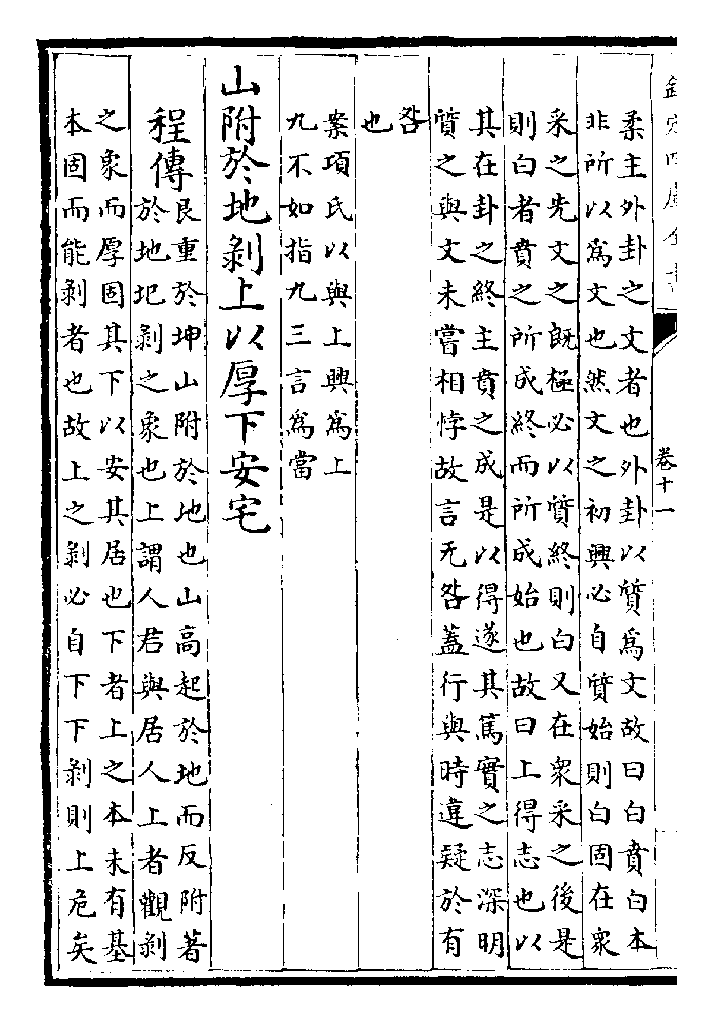 欽定四庫全書
卷十一
柔主外卦之文者也外卦以質爲文故曰白賁白本
非所以爲文也然文之初興必自質始則白固在衆
采之先文之既極必以質終則白又在衆采之後是
則白者賁之所成終而所成始也故曰上得志也以
其在卦之終主賁之成是以得遂其篤實之志深明
質之與文未嘗相悖故言无咎蓋行與時違疑於有
咎
也
案項氏以與上興爲上
九不如指九三言爲當
山附於地剝上以厚下安宅
程傳
艮重於坤山附於地也山高起於地而反附著
於地圮剝之象也上謂人君與居人上者觀剝
之象而厚固其下以安其居也下者上之本未有基
本固而能剝者也故上之剝必自下下剝則上危矣